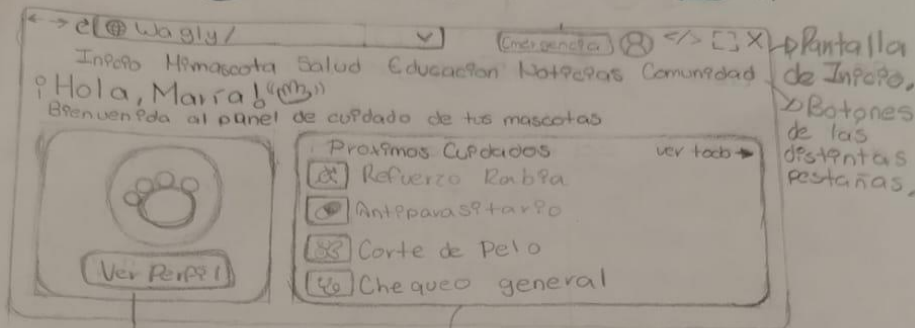 Wagly/
Emergencia
Inicio Mi mascota Salud Educacion Noticias Comunidad
¡Hola, María!
Bienvenida al panel de cuidado de tus mascotas
Ver Perfil
Proximos Cuidados ver todo →
Refuerzo Rabia
Antiparasitario
Corte de Pelo
Chequeo general
→Pantalla
de Inicio.
→Botones
de las
distintas
pestañas.